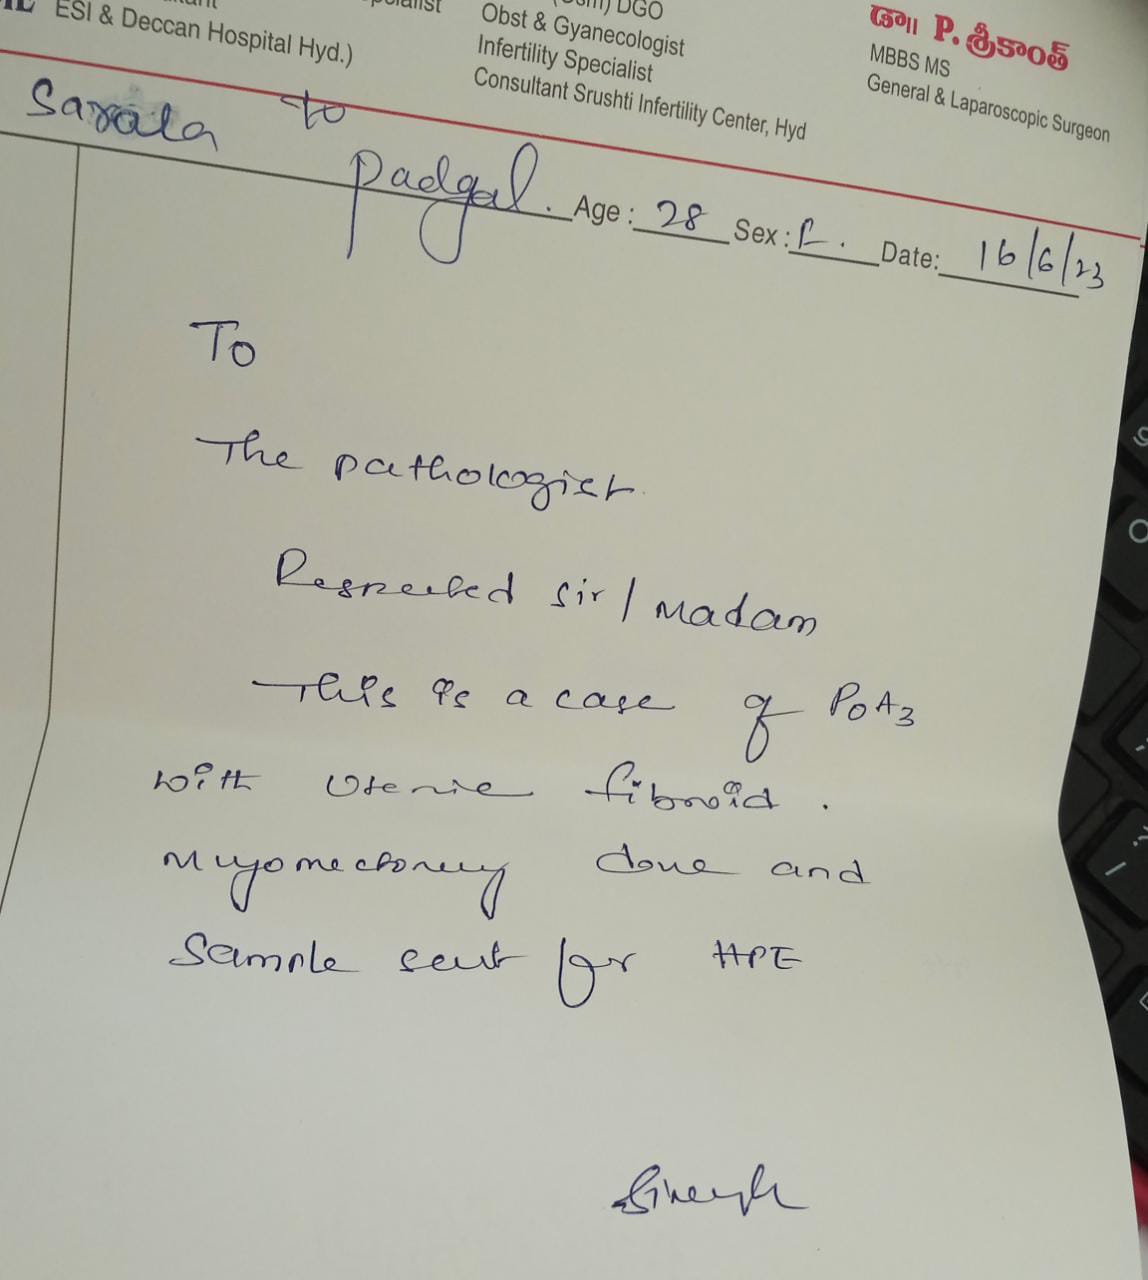 ESI & Deccan Hospital Hyd.)
DGO
Obst & Gyanecologist
Infertility Specialist
Consultant Srushti Infertility Center, Hyd
డా|| P. శ్రీకాంత్
MBBS MS
General & Laparoscopic Surgeon
Sarala to
Padgal. Age : 28 Sex : F. Date: 16/6/23
To
The pathologist
Respected sir / Madam
This is a case of P0A3
with Uterine fibroid.
Myomectomy done and
Sample sent for HPE